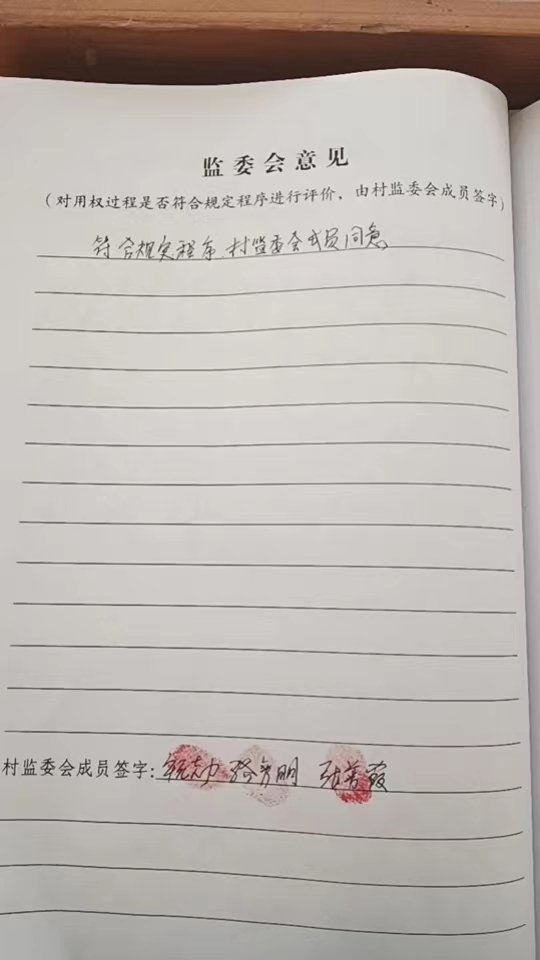 监委会意见
(对用权过程是否符合规定程序进行评价，由村监委会成员签字)
符合规定程序，村监委会成员同意
村监委会成员签字：